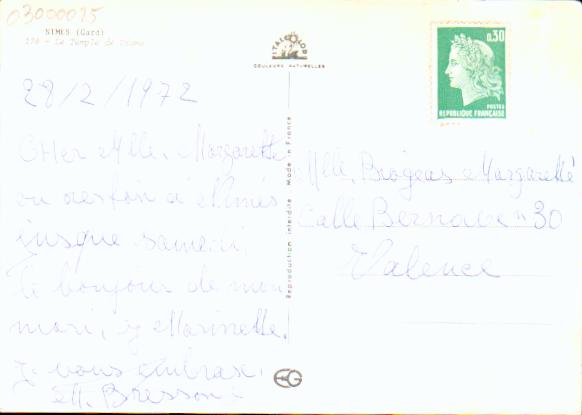 03000025
NIMES (Gard)
170 - Le Temple de Diane
ITALCOLOR
COULEURS NATURELLES
0,30
POSTES
REPUBLIQUE FRANÇAISE
28/2/1972
CHer Mlle. Margarette
ou restons à Nimes
jusque samedi,
le bonjour de mon
mari, y Marinette.
J. vous embrase.
M. Bresson
Reproduction interdite Made in France
Mlle, Brogeas Margarette
Calle Bernabe n 30
Valence
EG